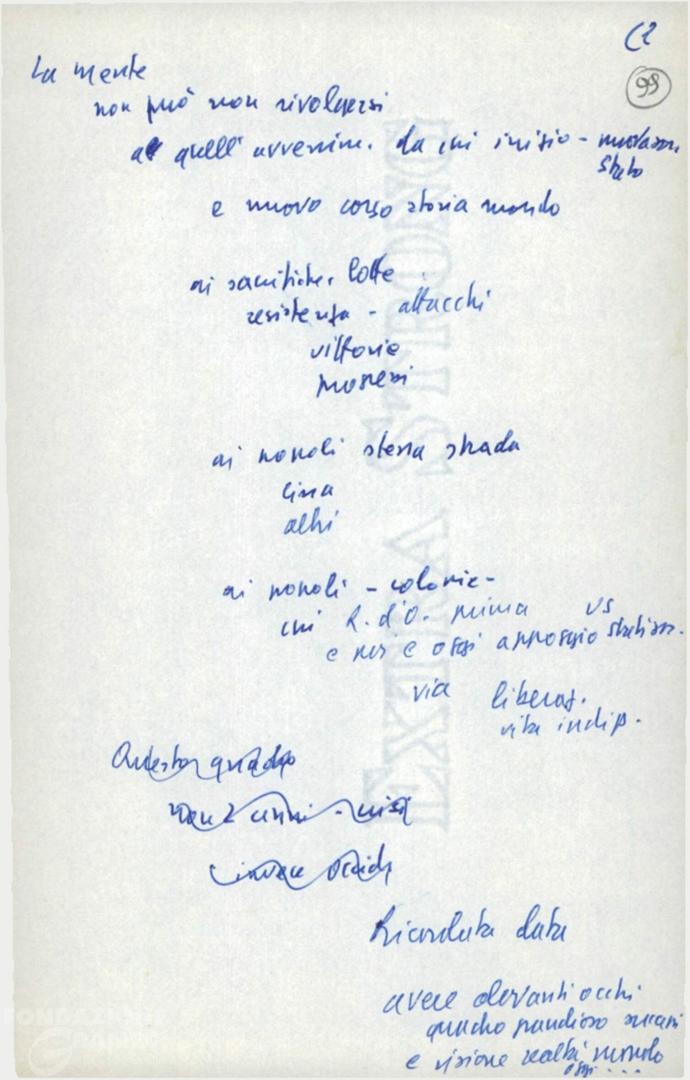 C2
99
La mente
non può non rivolgersi
a quell' avvenim. da cui inizio - mutazion.
Stato
e nuovo corso storia mondo
ai sacrifichi. lotte
resistenza - attacchi
vittorie
ai popoli stessa strada
Cina
altri
ai popoli - colonie -
cui R. d'O. prima US
e per e oggi appoggio
via liberaz.
vita indip.
Questo quadro
anni - crisi
invece
Ricordata data
avere davanti occhi
quadro grandioso
e visione realtà mondo
oggi ...
EXTRA STRONG
FONDAZIONE